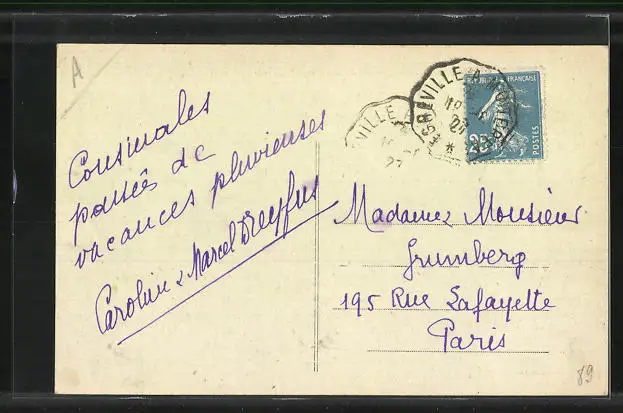 A
Cousinales
pensées de
vacances pluvieuses
Caroline & Marcel Dreyfus
EGREVILLE A
VILLE
REPUBLIQUE FRANÇAISE
25
POSTES
Madame Monsieur
Grumberg
195 Rue Lafayette
Paris
89